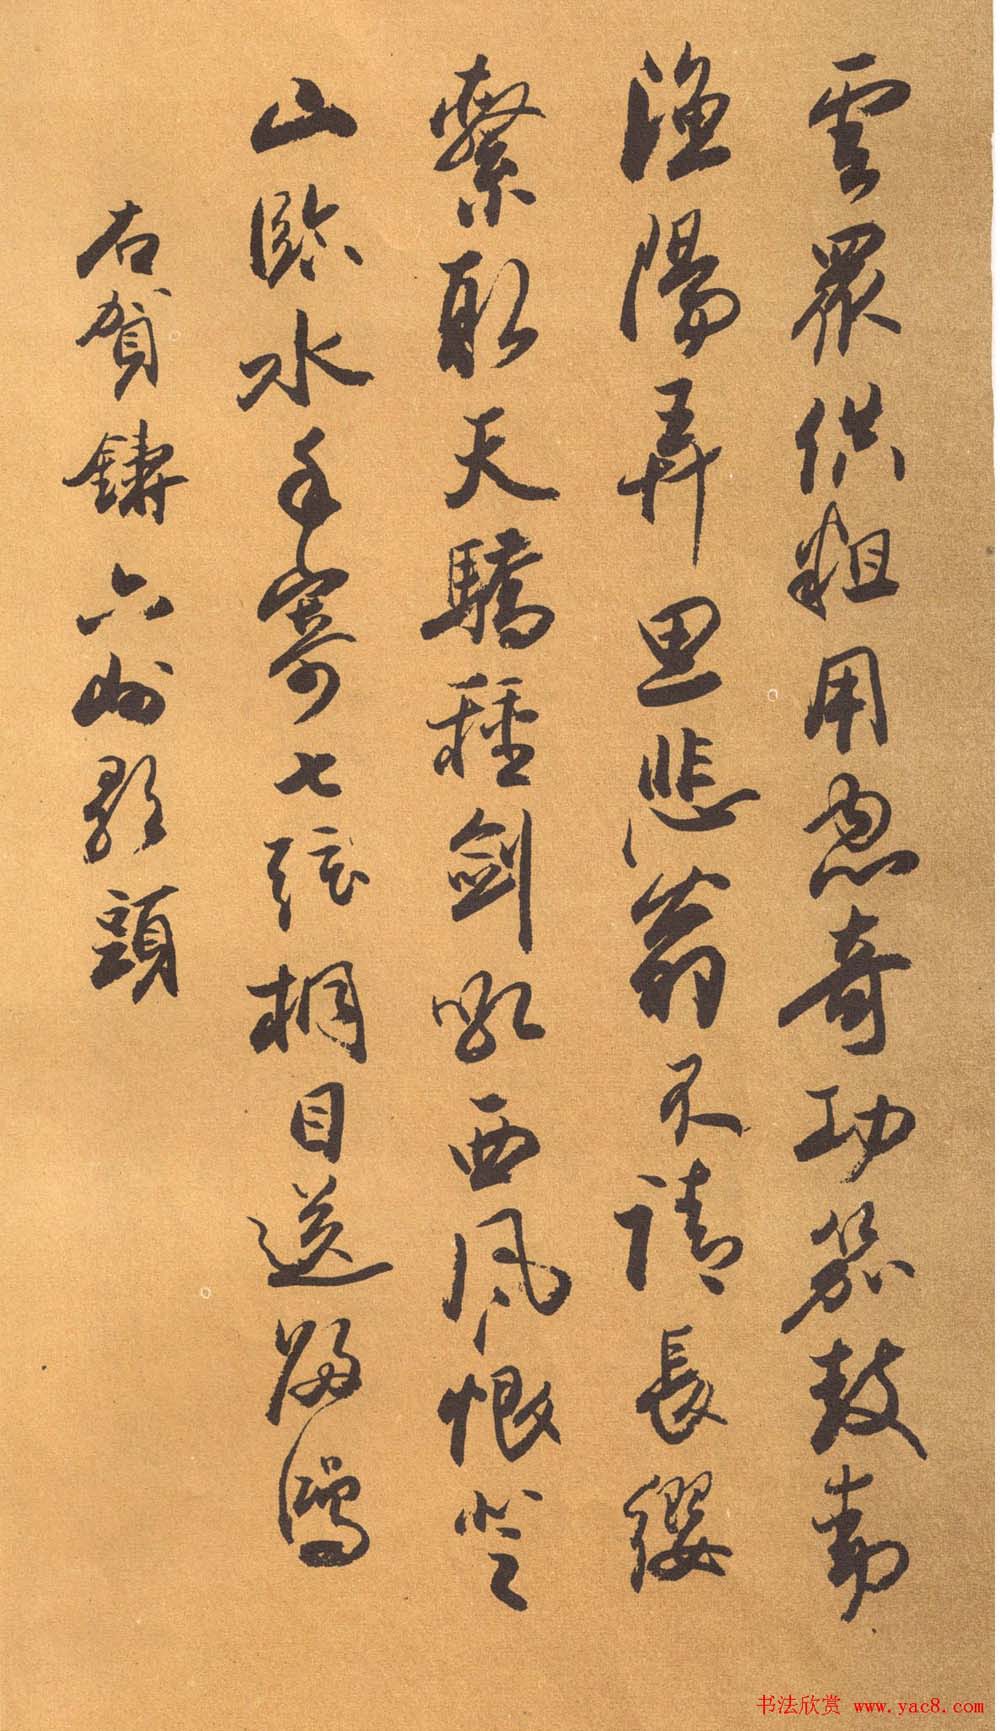 雲眾供粗用忽奇功笳鼓動
漁陽弄思悲翁不請長纓
繫取天驕種劍吼西風恨登
山臨水手寄七弦桐目送歸鴻
右賀鑄六州歌頭
书法欣赏 www.yac8.com